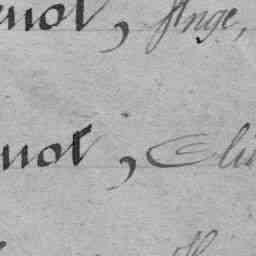 enot, Ange,
not, Eli